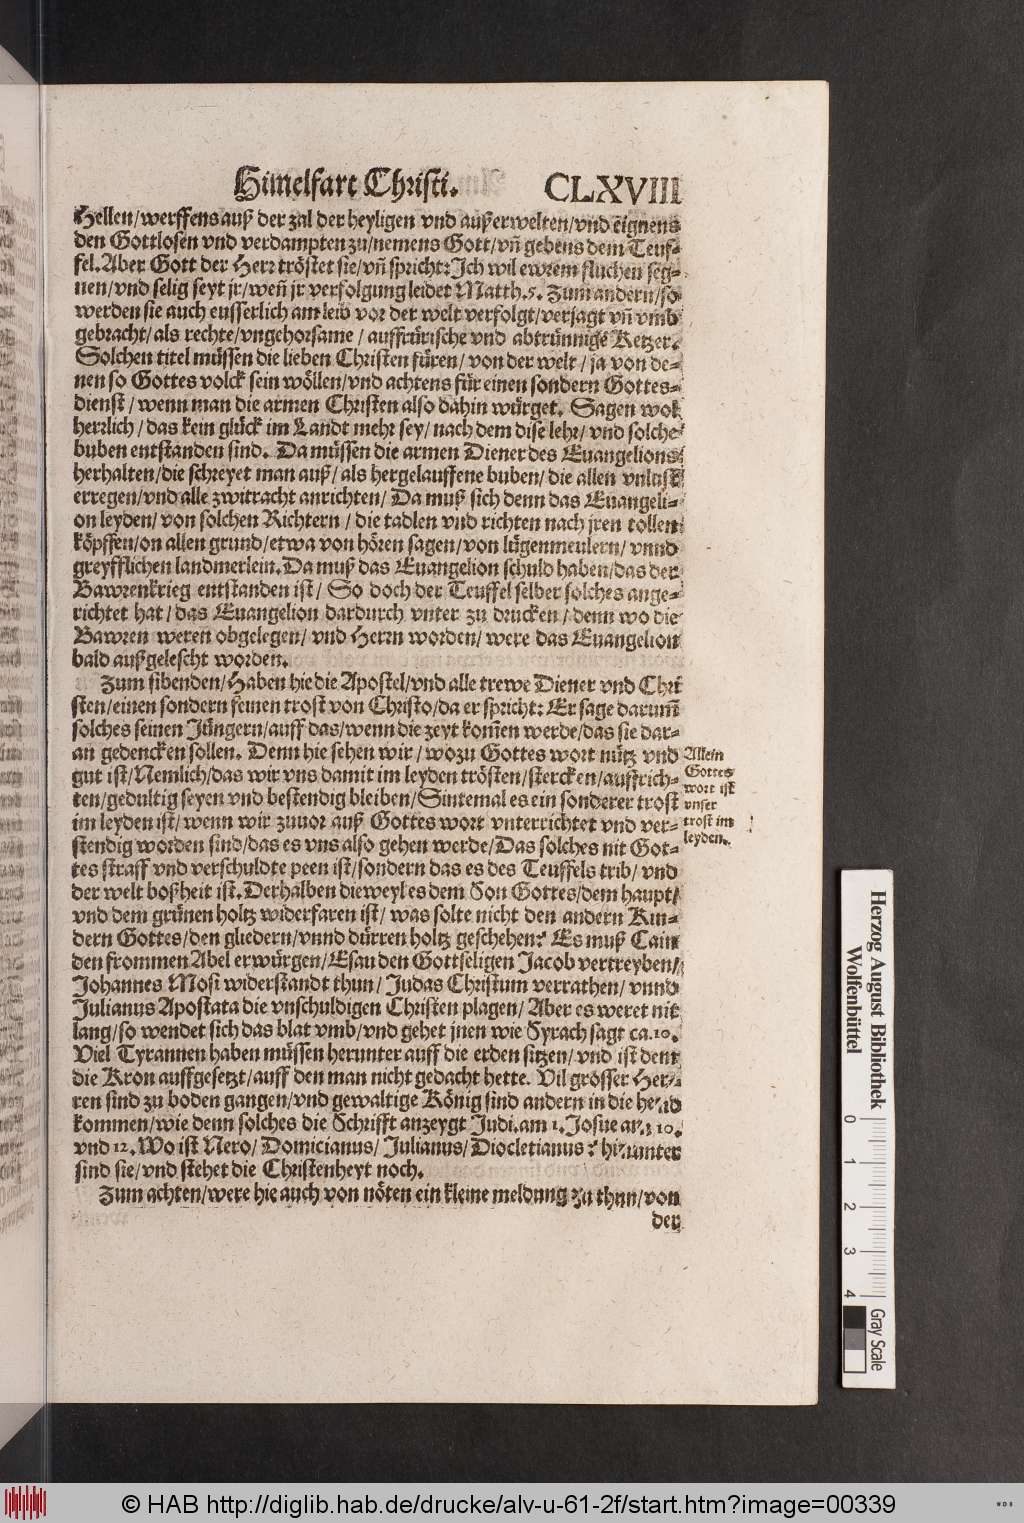 Himelfart Christi. CLXVIII
Hellen/werffens auß der zal der heyligen vnd außerwelten/vnd eignens
den Gottlosen vnd verdampten zu/nemens Gott/vñ gebens dem Teuf-
fel. Aber Gott der Herr tröstet sie/vñ spricht: Ich wil ewrem fluchen seg-
nen/vnd selig seyt jr/weñ jr verfolgung leidet Matth.5. Zum andern/so
werden sie auch eusserlich am leib vor der welt verfolgt/verjagt vñ vmb
gebracht/als rechte/vngehorsame/auffrürische vnd abtrünnige Ketzer.
Solchen titel müssen die lieben Christen füren/von der welt/ja von de-
nen so Gottes volck sein wöllen/vnd achtens für einen sondern Gottes-
dienst/wenn man die armen Christen also dahin würget. Sagen wol
herrlich/das kein glück im Landt mehr sey/nach dem dise lehr/vnd solche
buben entstanden sind. Da müssen die armen Diener des Euangelions
herhalten/die schreyet man auß/als hergelauffene buben/die allen vnlust
erregen/vnd alle zwitracht anrichten/Da muß sich denn das Euangeli-
on leyden/von solchen Richtern/die tadlen vnd richten nach jren tollen
köpffen/on allen grund/etwa von hören sagen/von lügenmeulern/vnnd
greyfflichen landmerlein. Da muß das Euangelion schuld haben/das der
Bawrenkrieg entstanden ist/So doch der Teuffel selber solches ange-
richtet hat/das Euangelion dardurch vnter zu drucken/denn wo die
Bawren weren obgelegen/vnd Herrn worden/were das Euangelion
bald außgelescht worden.
Zum sibenden/Haben hie die Apostel/vnd alle trewe Diener vnd Chri
sten/einen sondern feinen trost von Christo/da er spricht: Er sage darumb
solches seinen Jüngern/auff das/wenn die zeyt kom̃en werde/das sie dar-
an gedencken sollen. Denn hie sehen wir/wozu Gottes wort nütz vnd
gut ist/Nemlich/das wir vns damit im leyden trösten/stercken/auffrich-
ten/gedultig seyen vnd bestendig bleiben/Sintemal es ein sonderer trost
im leyden ist/wenn wir zuuor auß Gottes wort vnterrichtet vnd ver-
stendig worden sind/das es vns also gehen werde/Das solches nit Got-
tes straff vnd verschuldte peen ist/sondern das es des Teuffels trib/vnd
der welt boßheit ist. Derhalben dieweyl es dem Son Gottes/dem haupt/
vnd dem grünen holtz widerfaren ist/was solte nicht den andern Kin-
dern Gottes/den gliedern/vnnd dürren holtz geschehen? Es muß Cain
den frommen Abel erwürgen/Esau den Gottseligen Jacob vertreyben/
Johannes Mosi widerstandt thun/Judas Christum verrathen/vnnd
Julianus Apostata die vnschuldigen Christen plagen/Aber es weret nit
lang/so wendet sich das blat vmb/vnd gehet jnen wie Syrach sagt ca.10.
Viel Tyrannen haben müssen herunter auff die erden sitzen/vnd ist dem
die Kron auffgesetzt/auff den man nicht gedacht hette. Vil grösser Her-
ren sind zu boden gangen/vnd gewaltige König sind andern in die hend
kommen/wie denn solches die Schrifft anzeygt Judi.am 1. Josue am 10.
vnd 12. Wo ist Nero/Domicianus/Julianus/Diocletianus? hinunter
sind sie/vnd stehet die Christenheyt noch.
Zum achten/were hie auch von nöten ein kleine meldung zu thun/von
der
Allein
Gottes
wort ist
vnser
trost im
leyden.
Herzog August Bibliothek
Wolfenbüttel
0 1 2 3 4
Gray Scale
© HAB http://diglib.hab.de/drucke/alv-u-61-2f/start.htm?image=00339